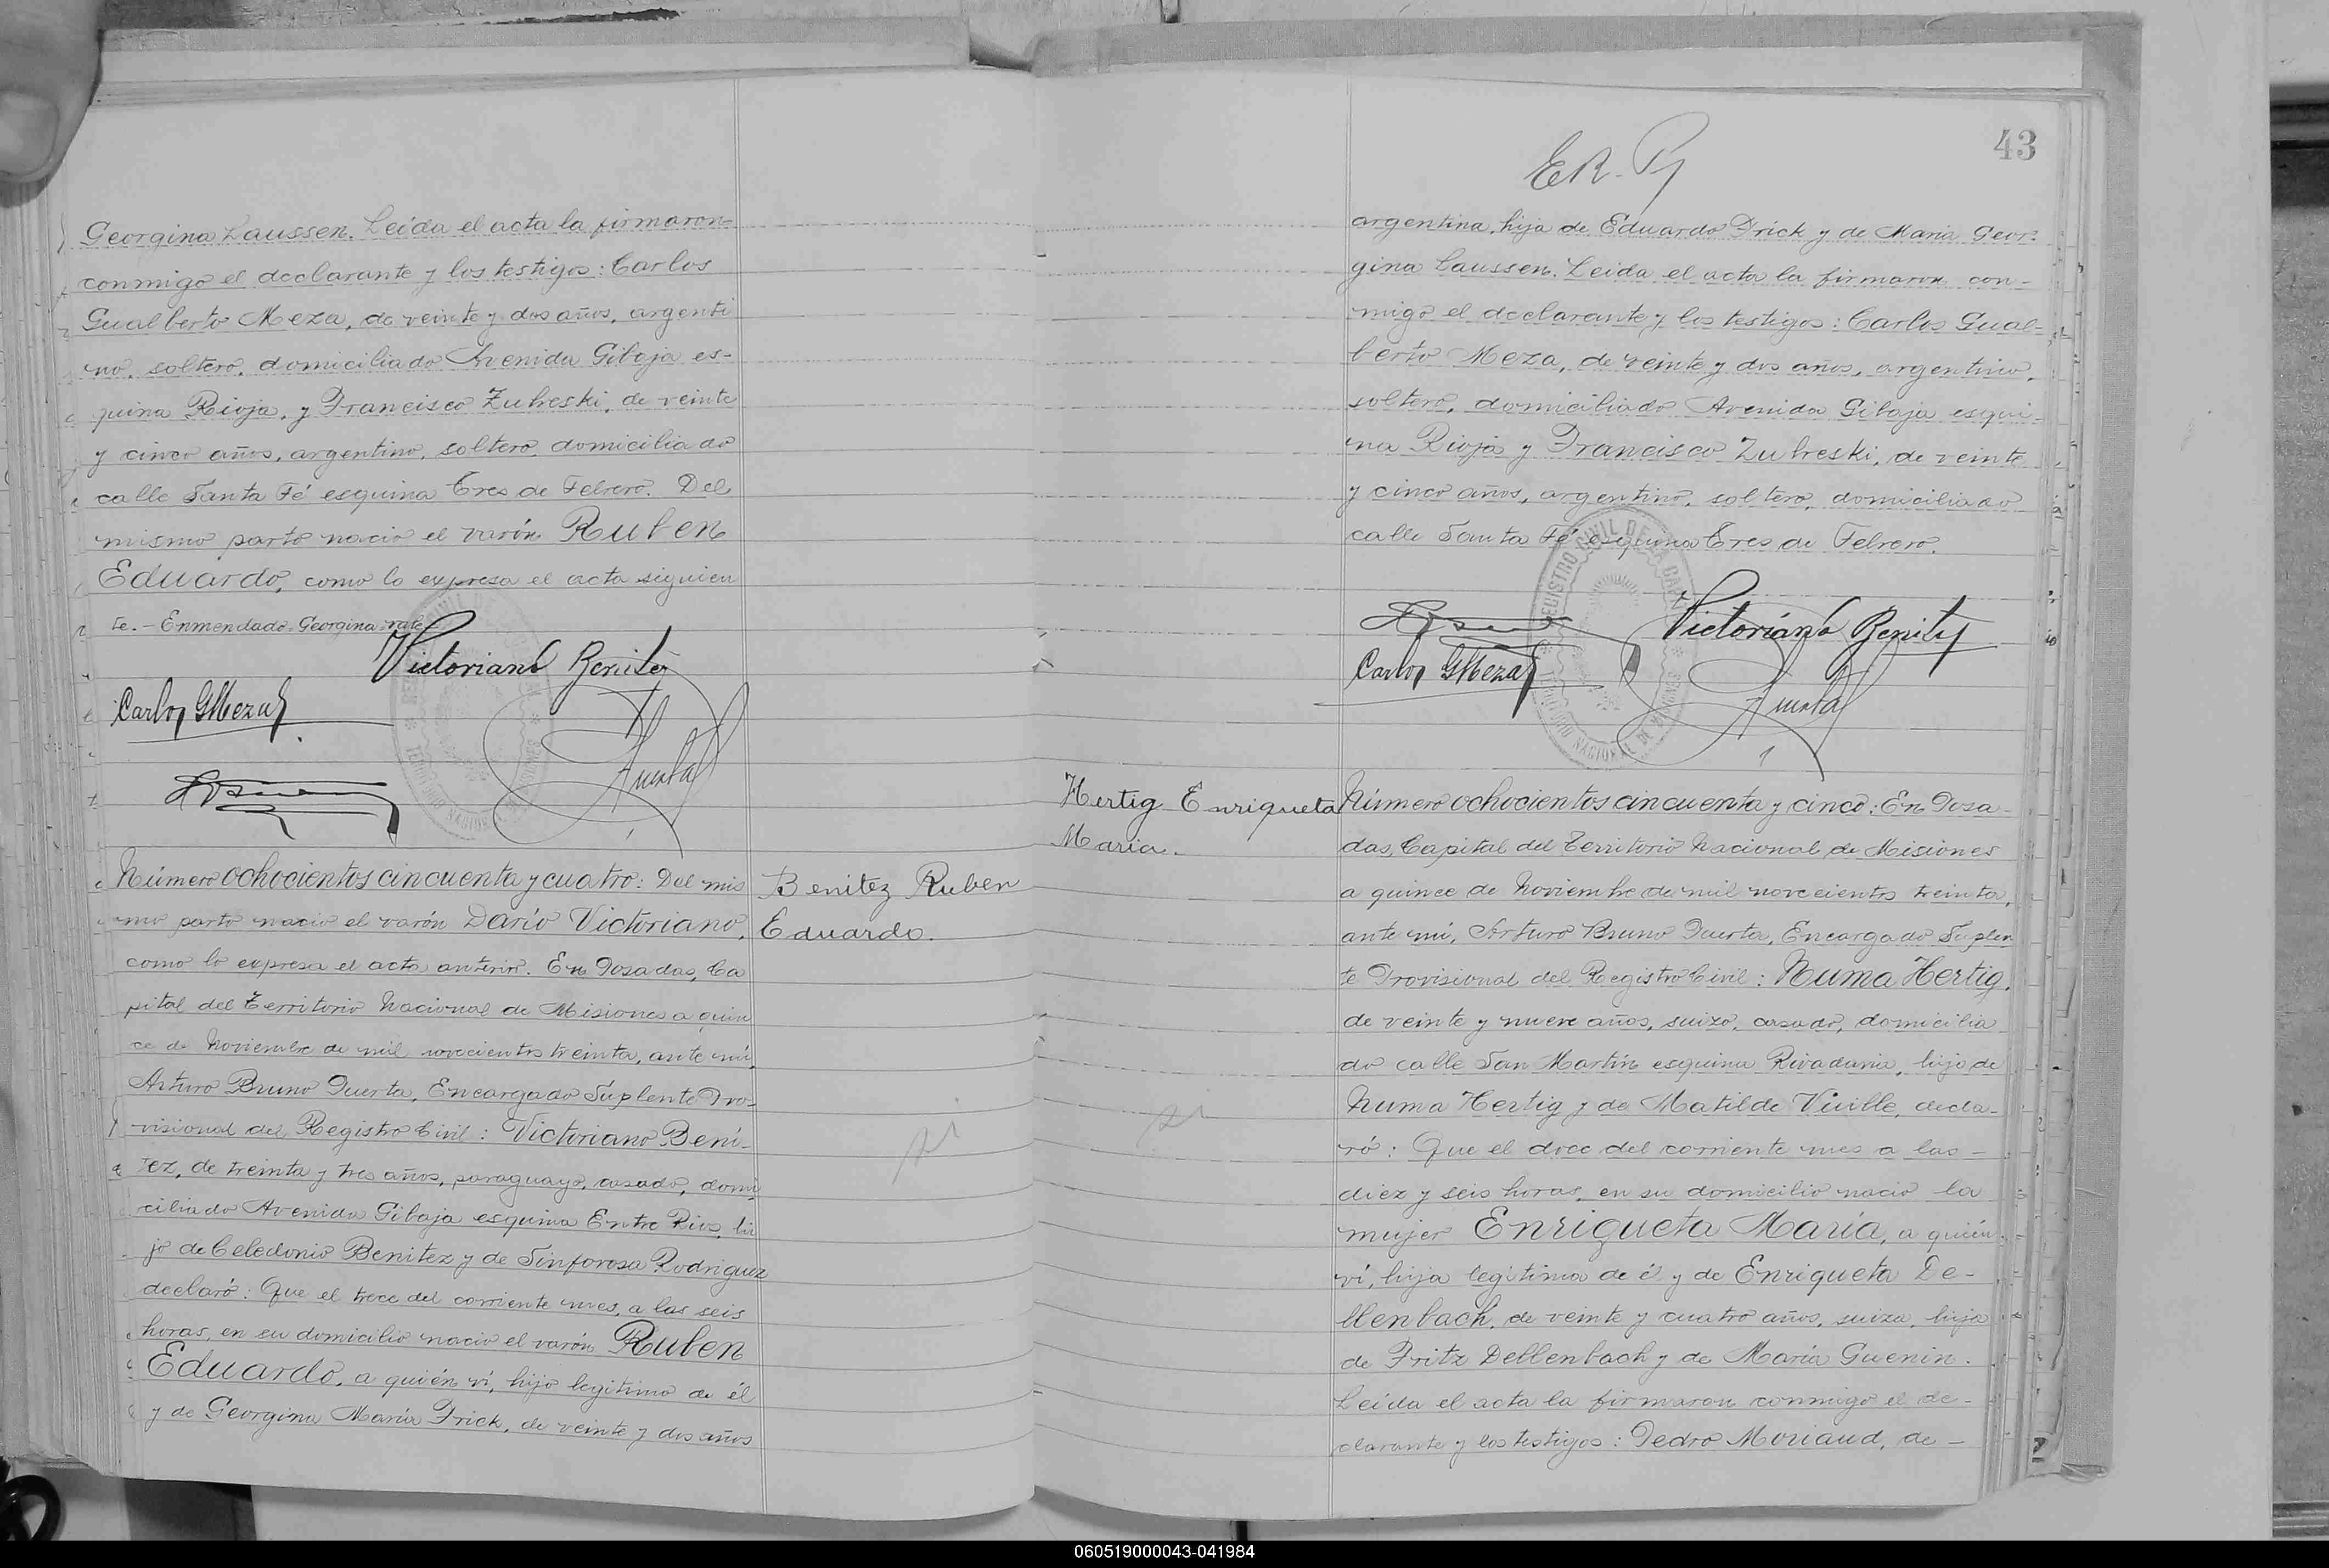 Georgina Laussen. Leída el acta la firmaron
conmigo el declarante y los testigos: Carlos
Gualberto Meza, de veinte y dos años, argenti
no, soltero, domiciliado Avenida Gibaja es-
quina Rioja, y Francisco Zubreski, de veinte
y cinco años, argentino, soltero, domiciliado
calle Santa Fé esquina Tres de Febrero. Del
mismo parto nació el varón Ruben
Eduardo, como lo expresa el acta siguien
te.- Enmendado-Georgina-vale
Victoriano Benitez
Carlos G Meza
Número ochocientos cincuenta y cuatro: Del mis
mo parto nació el varón Darío Victoriano,
como lo expresa el acta anterior. En Posadas, Ca
pital del Territorio Nacional de Misiones a quin
ce de Noviembre de mil novecientos treinta, ante mí,
Arturo Bruno Puerta, Encargado Suplente Pro-
visional del Registro Civil: Victoriano Bení-
tez, de treinta y tres años, paraguayo, casado, domi
ciliado Avenida Gibaja esquina Entre Rios, hi
jo de Celedonio Benitez y de Sinforosa Rodriguez
declaró: Que el trece del corriente mes, a las seis
horas, en su domicilio nació el varón Ruben
Eduardo, a quién ví, hijo legítimo de él
y de Georgina María Frick, de veinte y dos años
Benitez Ruben
Eduardo.
43
E R. P
argentina, hija de Eduardo Frick y de Maria Geor-
gina Laussen. Leida el acta la firmaron con-
migo el declarante y los testigos: Carlos Gual-
berto Meza, de veinte y dos años, argentino,
soltero, domiciliado Avenida Gibaja esqui-
na Rioja y Francisco Zubreski, de veinte
y cinco años, argentino, soltero, domiciliado
calle Santa Fé esquina Tres de Febrero.
REGISTRO CIVIL DE LA CAPITAL
TERRITORIO NACIONAL DE MISIONES
Victoriano Benitez
Carlos G Meza
Hertig Enriqueta
Maria.
Número ochocientos cincuenta y cinco: En Posa-
das, Capital del Territorio Nacional de Misiones
a quince de Noviembre de mil novecientos treinta,
ante mí, Arturo Bruno Puerta, Encargado Suplen
te Provisional del Registro Civil: Numa Hertig,
de veinte y nueve años, suizo, casado, domicilia
do calle San Martín esquina Rivadavia, hijo de
Numa Hertig y de Matilde Vuille, decla-
ró: Que el doce del corriente mes a las -
diez y seis horas, en su domicilio nació la
mujer Enriqueta María, a quién
ví, hija legítima de él y de Enriqueta De-
llenbach, de veinte y cuatro años, suiza, hija
de Fritz Dellenbach y de María Guenin.
Leída el acta la firmaron conmigo el de-
clarante y los testigos: Pedro Moriaud, de -
060519000043-041984